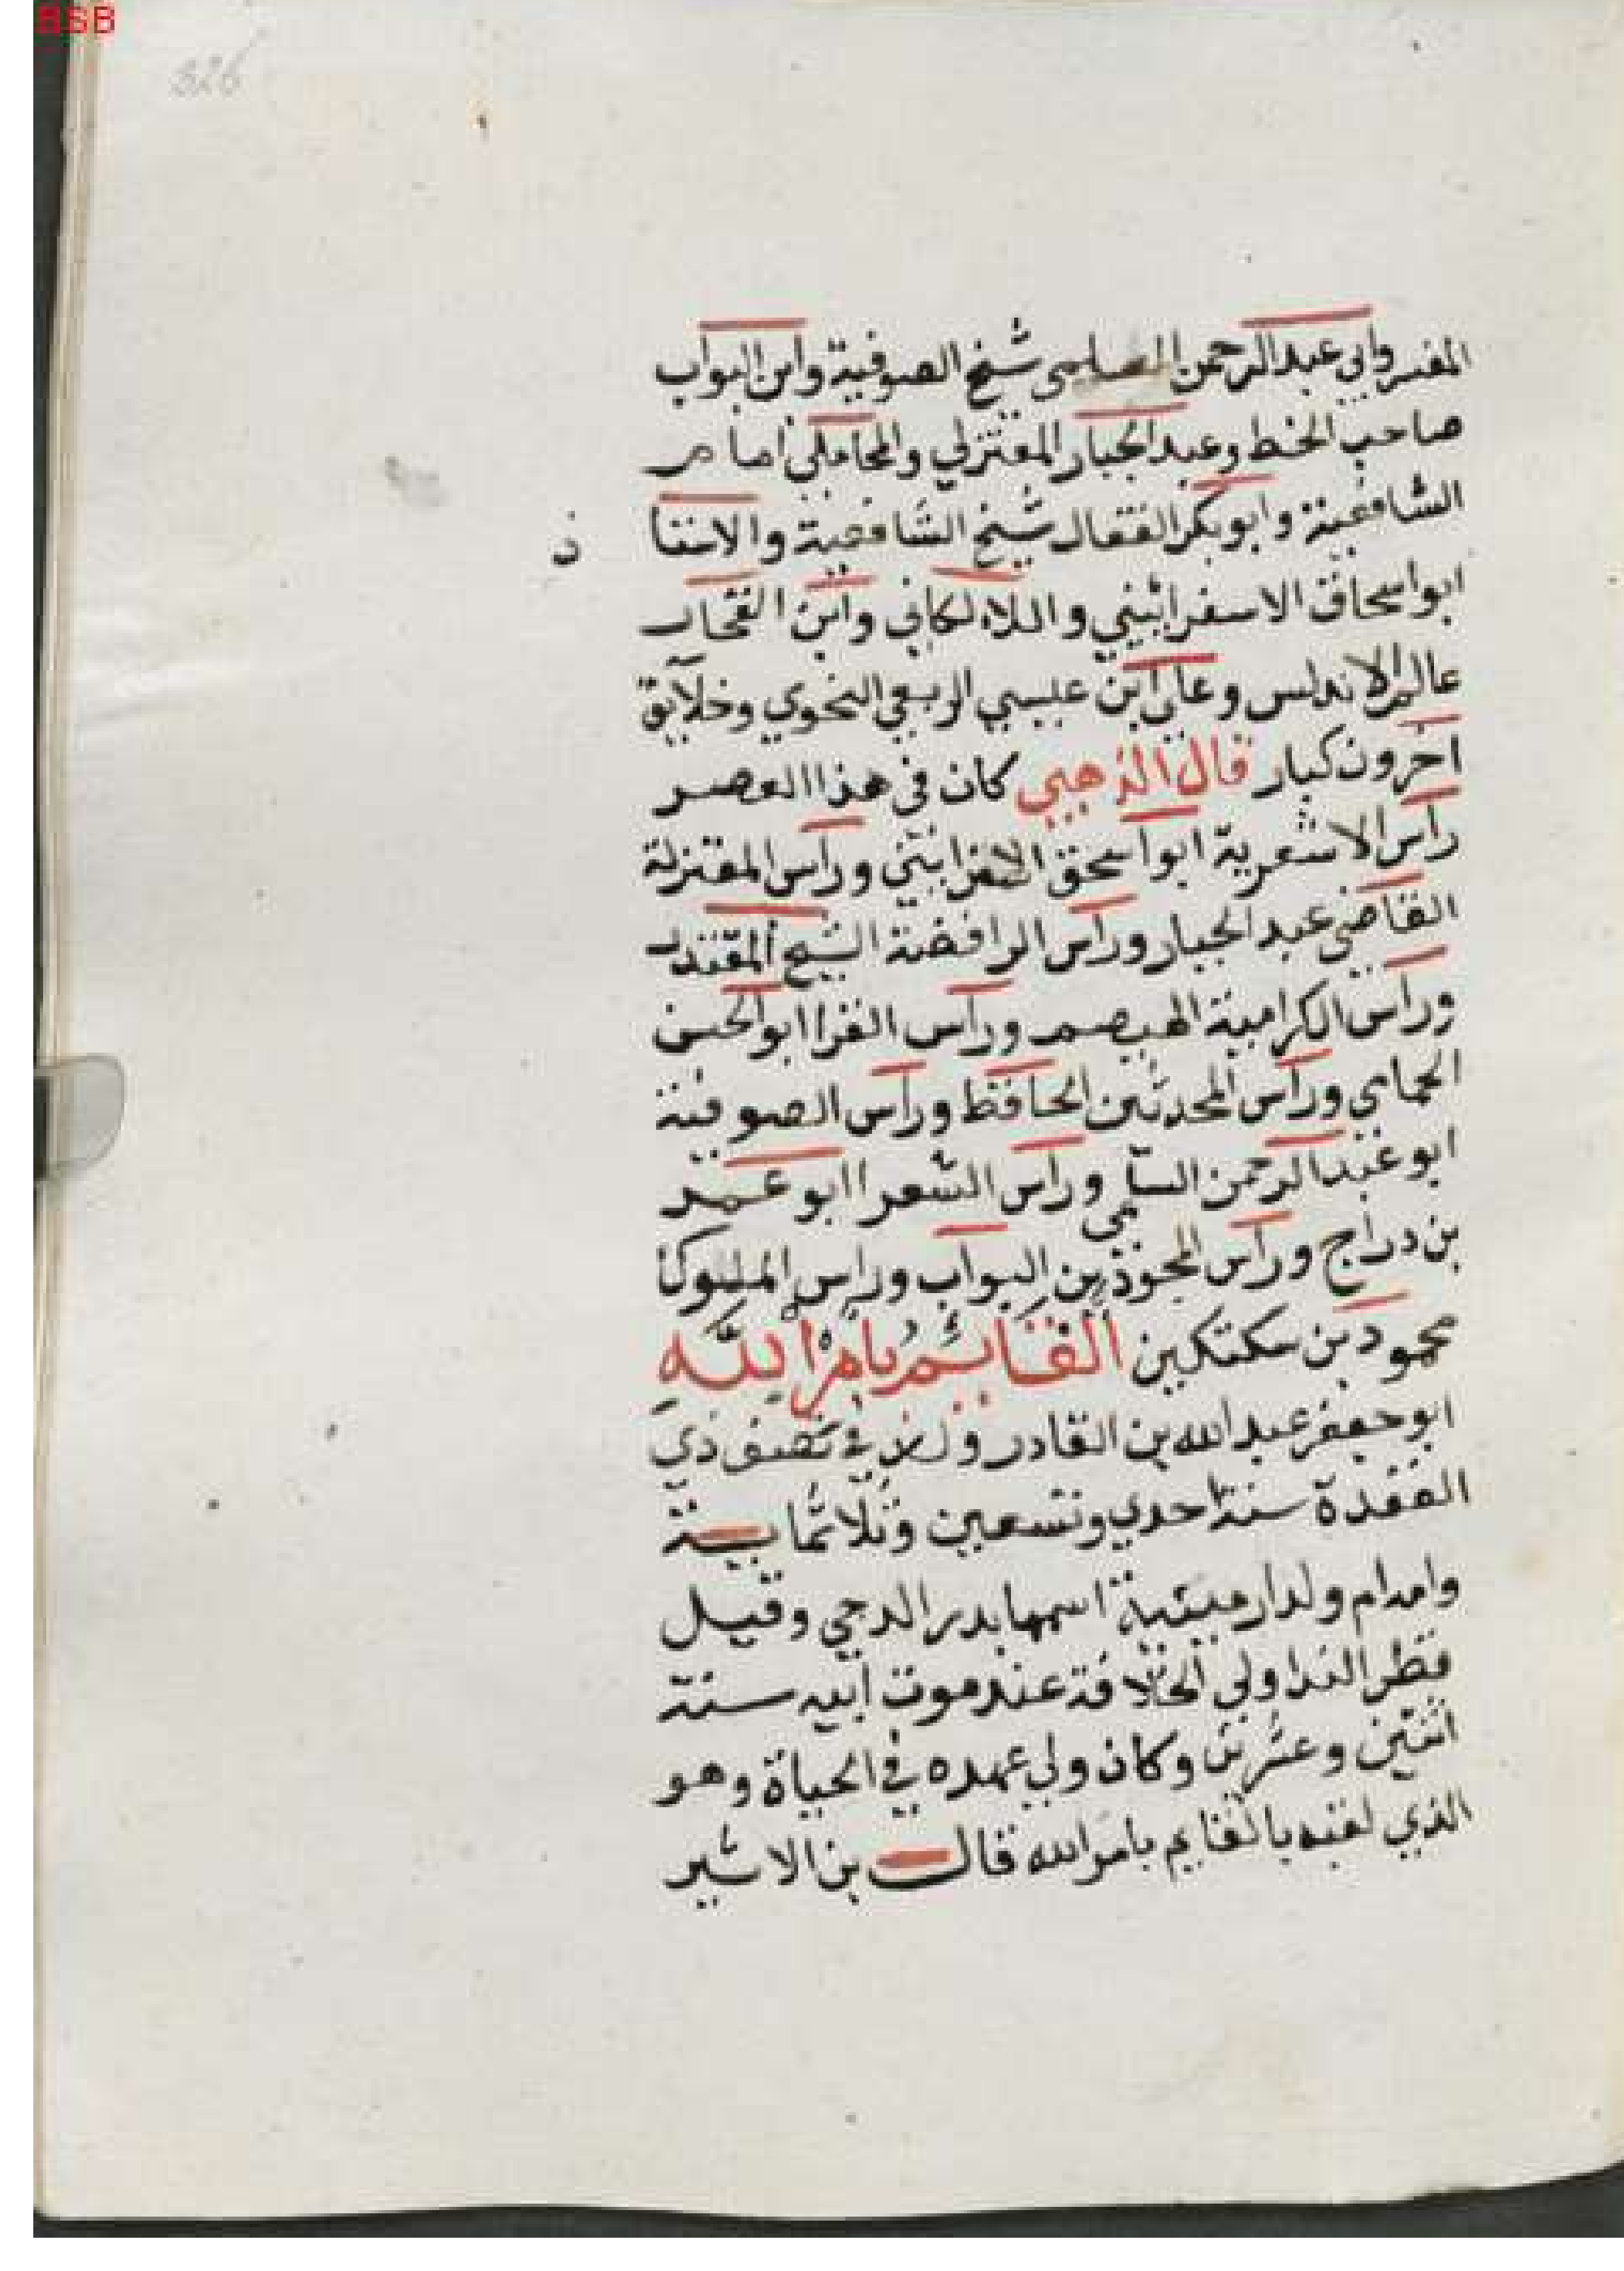 BSB
326
المفسر وابي عبد الرحمن السلمي شيخ الصوفية وابن البواب
صاحب الخط وعبد الجبار المعتزلي والمحاملي امام
الشافعية وابو بكر القفال شيخ الشافعية والاستا ذ
ابو اسحاق الاسفرائيني واللالكائي وابن الفخار
عالم الاندلس وعلي ابن عيسي الربعي النحوي وخلايق
اخرون كبار قال الذهبي كان في هذا العصر
راس الاشعرية ابو اسحق الاسفرايني وراس المعتزلة
القاضي عبد الجبار وراس الرافضة الشيخ المقتدر
وراس الكرامية الهيصم وراس القرا ابو الحسن
الحماي وراس المحدثين الحافظ وراس الصوفية
ابو عبد الرحمن السلمي وراس الشعرا ابو عمر
بن دراج وراس المجوذين البواب وراس الملوك
محمود بن سكتكين القايم بامر الله
ابو جعفر عبد الله بن القادر ولد في نصف ذي
القعدة سنة احدي وتسعين وثلاثماية
وامه ام ولد ارمينية اسمها بدر الدجي وقيل
قطر الندا ولي الخلافة عند موت ابيه سنة
اثنين وعشرين وكان ولي عهده في الحياة وهو
الذي لقبه بالقايم بامر الله قال بن الاثير